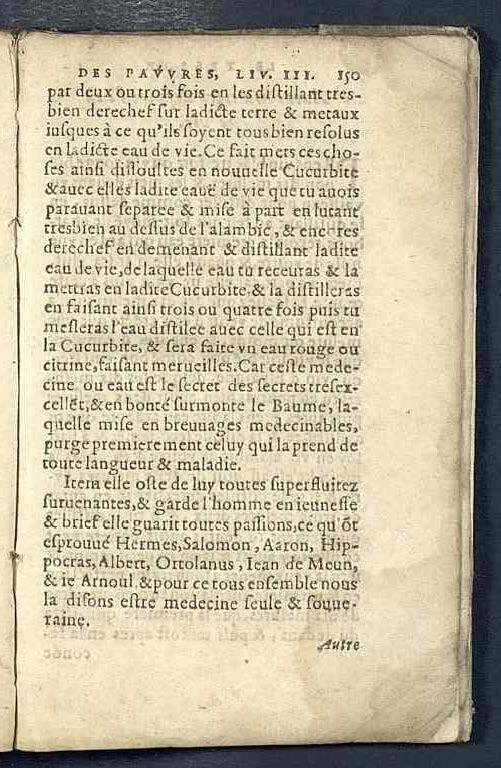 DES PAVVRES, LIV. III. 150
par deux ou trois fois en les distillant tres-
bien derechef sur ladicte terre & metaux
iusques à ce qu'ils soyent tous bien resolus
en ladicte eau de vie. Ce fait mets ces cho-
ses ainsi dissoultes en nouuelle Cucurbite
& auec elles ladite eauë de vie que tu auois
parauant separee & mise à part en lutant
tresbien au dessus de l'alambic, & encores
derechef en demenant & distillant ladite
eau de vie, de laquelle eau tu receuras & la
mettras en ladite Cucurbite & la distilleras
en faisant ainsi trois ou quatre fois puis tu
mesleras l'eau distilee auec celle qui est en
la Cucurbite, & sera faite vn eau rouge ou
citrine, faisant merueilles. Car ceste mede-
cine ou eau est le secret des secrets tresex-
cellẽt, & en bonté surmonte le Baume, la-
quelle mise en breuuages medecinables,
purge premierement celuy qui la prend de
toute langueur & maladie.
Item elle oste de luy toutes superfluitez
suruenantes, & garde l'homme en ieunesse
& brief elle guarit toutes passions, ce qu'õt
esprouué Hermes, Salomon, Aaron, Hip-
pocras, Albert, Ortolanus, Iean de Meun,
& ie Arnoul & pour ce tous ensemble nous
la disons estre medecine seule & souue-
raine.
Autre